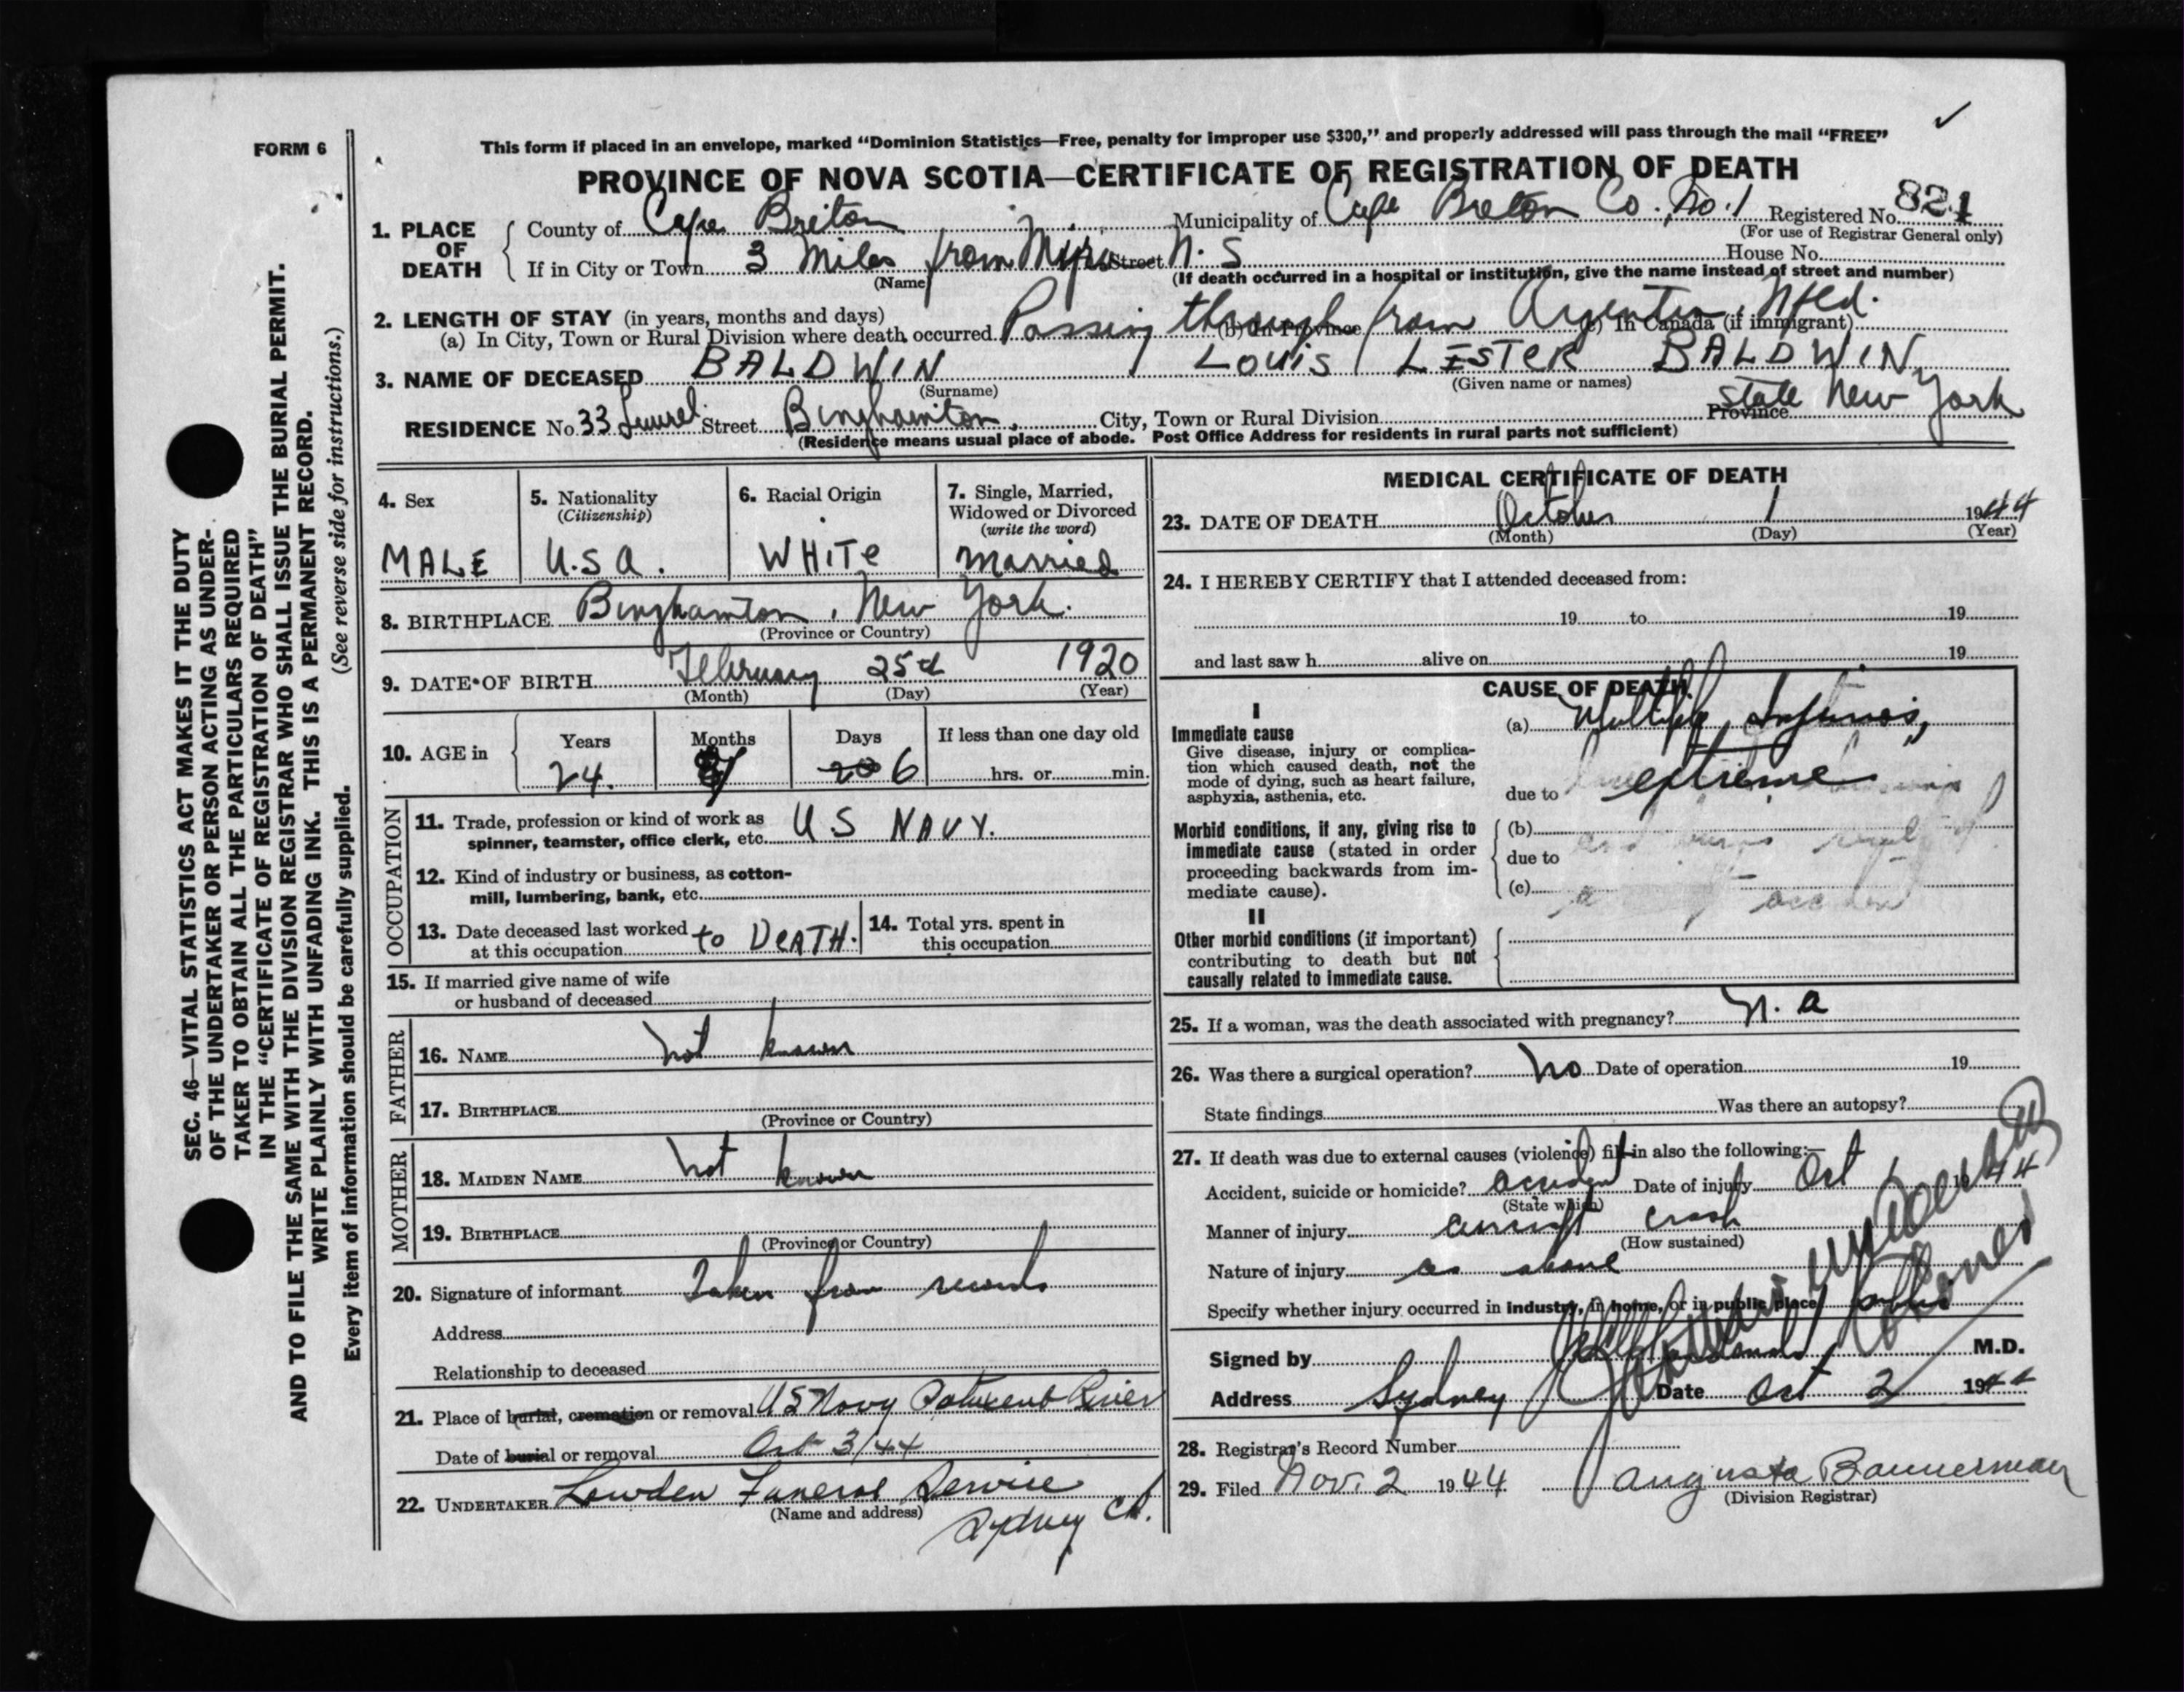 FORM 6
This form if placed in an envelope, marked "Dominion Statistics—Free, penalty for improper use $300," and properly addressed will pass through the mail "FREE"
PROVINCE OF NOVA SCOTIA—CERTIFICATE OF REGISTRATION OF DEATH
1. PLACE OF DEATH
County of Cape Breton Municipality of Cape Breton Co., No. 1 Registered No. 821
(For use of Registrar General only)
If in City or Town 3 Miles from Mira Street N. S House No.
(Name) (If death occurred in a hospital or institution, give the name instead of street and number)
2. LENGTH OF STAY (in years, months and days)
(a) In City, Town or Rural Division where death occurred Passing through from Argentia, Nfld. (b) In Province (c) In Canada (if immigrant)
3. NAME OF DECEASED BALDWIN / LOUIS / LESTER BALDWIN
(Surname) (Given name or names)
RESIDENCE No. 33 Laurel Street Binghamton, City, Town or Rural Division Province state New York
(Residence means usual place of abode. Post Office Address for residents in rural parts not sufficient)
4. Sex
MALE
5. Nationality
(Citizenship)
U.S.A.
6. Racial Origin
WHITE
7. Single, Married, Widowed or Divorced
(write the word)
Married
8. BIRTHPLACE Binghamton, New York.
(Province or Country)
9. DATE OF BIRTH February 25th 1920
(Month) (Day) (Year)
10. AGE in Years Months Days If less than one day old
24. 20 6 hrs. or min.
OCCUPATION
11. Trade, profession or kind of work as
spinner, teamster, office clerk, etc. U S NAVY.
12. Kind of industry or business, as cotton-
mill, lumbering, bank, etc.
13. Date deceased last worked
at this occupation to DEATH.
14. Total yrs. spent in
this occupation
15. If married give name of wife
or husband of deceased
FATHER
16. NAME not known
17. BIRTHPLACE
(Province or Country)
MOTHER
18. MAIDEN NAME not known
19. BIRTHPLACE
(Province or Country)
20. Signature of informant Taken from records
Address
Relationship to deceased
21. Place of burial, cremation or removal US Navy Patuxent River
Date of burial or removal Oct 3/44
22. UNDERTAKER Lowden Funeral Service
(Name and address) Sydney CB.
MEDICAL CERTIFICATE OF DEATH
23. DATE OF DEATH October 1 1944
(Month) (Day) (Year)
24. I HEREBY CERTIFY that I attended deceased from:
19 to 19
and last saw h alive on 19
CAUSE OF DEATH
I
Immediate cause
Give disease, injury or complica-
tion which caused death, not the
mode of dying, such as heart failure,
asphyxia, asthenia, etc.
(a) Multiple Injuries,
due to extreme
Morbid conditions, if any, giving rise to
immediate cause (stated in order
proceeding backwards from im-
mediate cause).
(b)
due to
(c) accident
II
Other morbid conditions (if important)
contributing to death but not
causally related to immediate cause.
25. If a woman, was the death associated with pregnancy? N. a
26. Was there a surgical operation? No Date of operation 19
State findings Was there an autopsy?
27. If death was due to external causes (violence) fill in also the following:—
Accident, suicide or homicide? accident Date of injury Oct 1 1944
(State which)
Manner of injury aircraft crash
(How sustained)
Nature of injury as above
Specify whether injury occurred in industry, in home, or in public place public
Signed by M.D.
Coroner
Address Sydney Date Oct 2 1944
28. Registrar's Record Number
29. Filed Nov. 2 1944 Augusta Bannerman
(Division Registrar)
SEC. 46—VITAL STATISTICS ACT MAKES IT THE DUTY
OF THE UNDERTAKER OR PERSON ACTING AS UNDER-
TAKER TO OBTAIN ALL THE PARTICULARS REQUIRED
IN THE "CERTIFICATE OF REGISTRATION OF DEATH"
AND TO FILE THE SAME WITH THE DIVISION REGISTRAR WHO SHALL ISSUE THE BURIAL PERMIT.
WRITE PLAINLY WITH UNFADING INK. THIS IS A PERMANENT RECORD.
Every item of information should be carefully supplied. (See reverse side for instructions.)